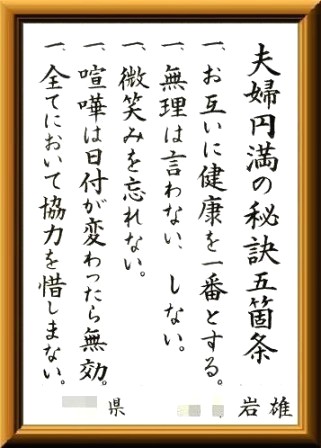 夫婦円満の秘訣五箇条
一、お互いに健康を一番とする。
一、無理は言わない、しない。
一、微笑みを忘れない。
一、喧嘩は日付が変わったら無効。
一、全てにおいて協力を惜しまない。
県
岩雄